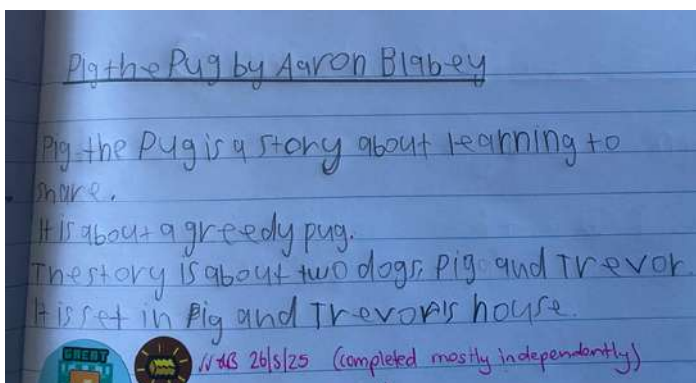 Pig the Pug by Aaron Blabey
Pig the Pug is a story about learning to
share.
It is about a greedy pug.
The story is about two dogs, Pig and Trevor
It is set in Pig and Trevor's house.
26/8/25 (completed mostly independently)
GREAT